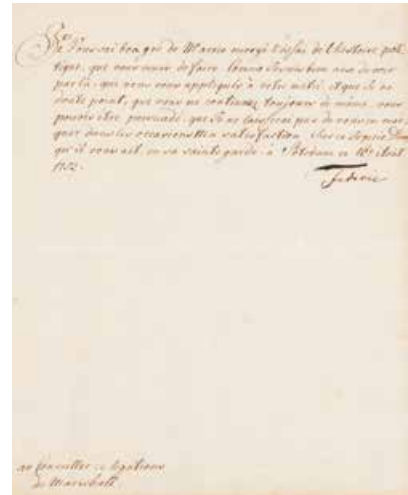 Je Vous sai bon gré de M'avoir envoyé l'essai de l'histoire poli-
tique, que vous venez de faire. comme Je vois bien aise de voir
par là, que vous vous appliquez à votre métier, et que Je ne
doute point, que vous ne continuez toujours de même, vous
pouvez être persuadé, que Je ne laisserai pas de vous en mar-
quer dans les occasions Ma satisfaction. Sur ce Je prie Dieu
qu'il vous ait en sa sainte garde. à Potsdam ce 16e d'Aout
1752.
Federic
au Conseiller de légations
de Marschall